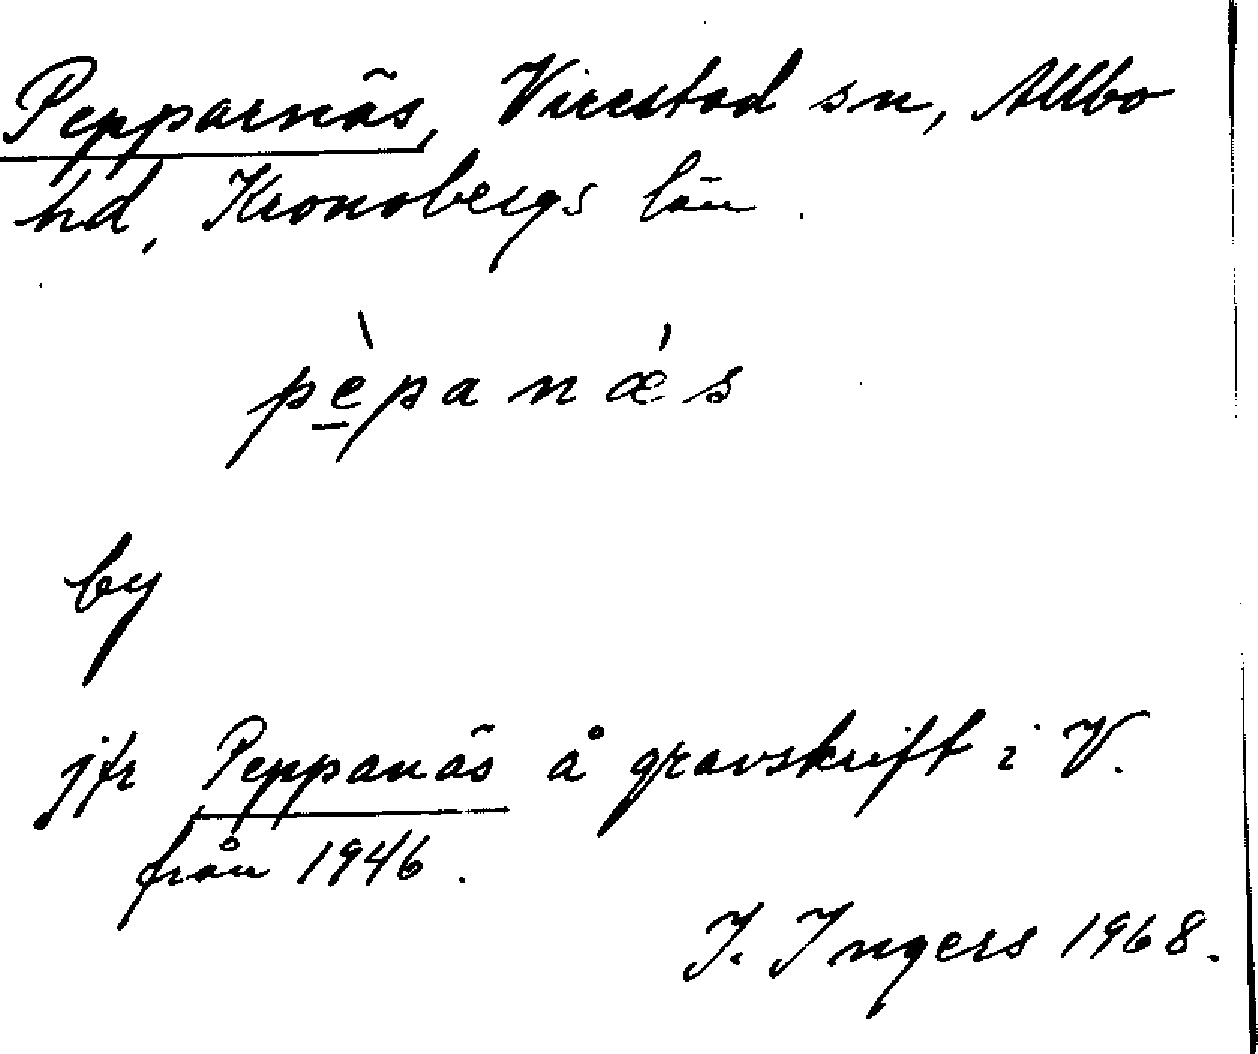 Pepparnäs, Virestad sn, Allbo
hd, Kronobergs län.
pè̠panǽs
by
jfr Peppanäs å gravskrift i V.
från 1946.
I. Ingers 1968.